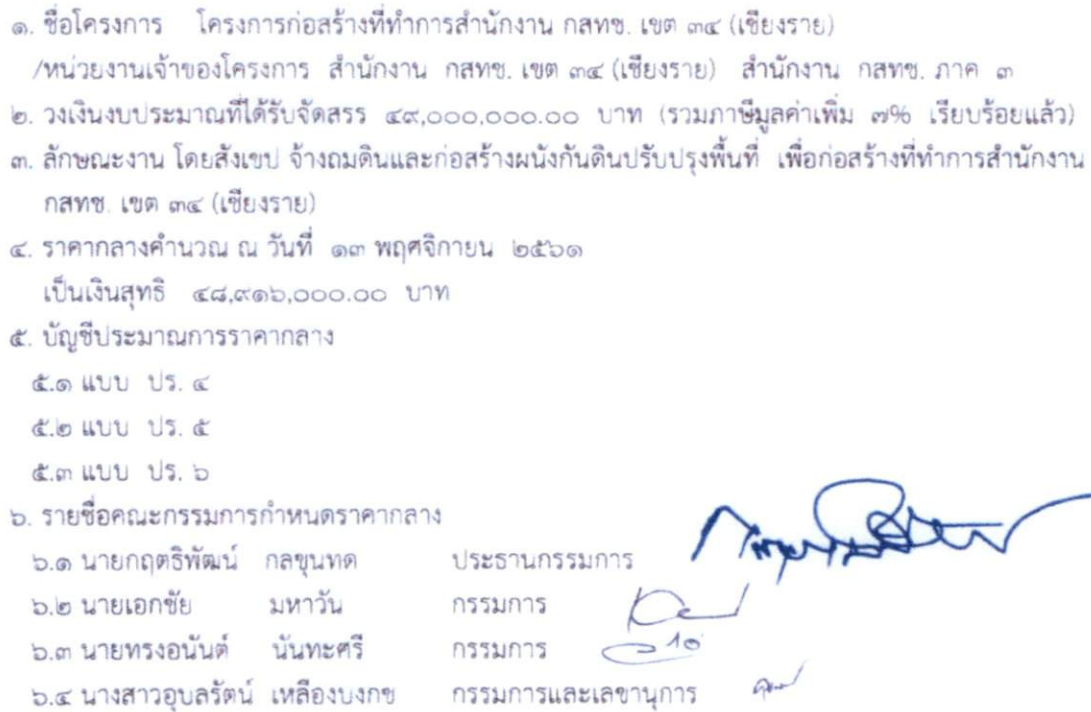 ๑. ชื่อโครงการ โครงการก่อสร้างที่ทำการสำนักงาน กสทช. เขต ๓๔ (เชียงราย)
/หน่วยงานเจ้าของโครงการ สำนักงาน กสทช. เขต ๓๔ (เชียงราย) สำนักงาน กสทช. ภาค ๓
๒. วงเงินงบประมาณที่ได้รับจัดสรร ๔๙,๐๐๐,๐๐๐.๐๐ บาท (รวมภาษีมูลค่าเพิ่ม ๗% เรียบร้อยแล้ว)
๓. ลักษณะงาน โดยสังเขป จ้างถมดินและก่อสร้างผนังกันดินปรับปรุงพื้นที่ เพื่อก่อสร้างที่ทำการสำนักงาน
กสทช. เขต ๓๔ (เชียงราย)
๔. ราคากลางคำนวณ ณ วันที่ ๑๓ พฤศจิกายน ๒๕๖๑
เป็นเงินสุทธิ ๔๘,๙๑๖,๐๐๐.๐๐ บาท
๕. บัญชีประมาณการราคากลาง
๕.๑ แบบ ปร. ๔
๕.๒ แบบ ปร. ๕
๕.๓ แบบ ปร. ๖
๖. รายชื่อคณะกรรมการกำหนดราคากลาง
๖.๑ นายกฤตธิพัฒน์ กลขุนทด ประธานกรรมการ
๖.๒ นายเอกชัย มหาวัน กรรมการ
๖.๓ นายทรงอนันต์ นันทะศรี กรรมการ
๖.๔ นางสาวอุบลรัตน์ เหลืองบงกช กรรมการและเลขานุการ